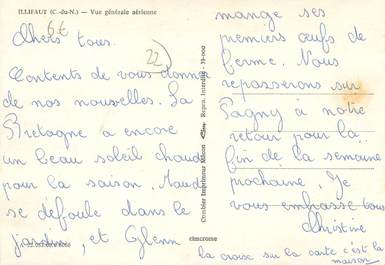 ILLIFAUT (C.-du-N.) — Vue générale aérienne
6€
22
Chers tous.
Contents de vous donner
de nos nouvelles. La
Bretagne a encore
un beau soleil chaud
pour la saison. Maud
se défoule dans le
jardin, et Glenn
mange ses
premiers œufs de
ferme. Nous
repasserons sur
Pagny à notre
retour pour la
fin de la semaine
prochaine. Je
vous embrasse tous
Christine
la croise sur la carte c'est la
maison
Combier Imprimeur Mâcon
Repro. Interdite - 39-000
cimcrome